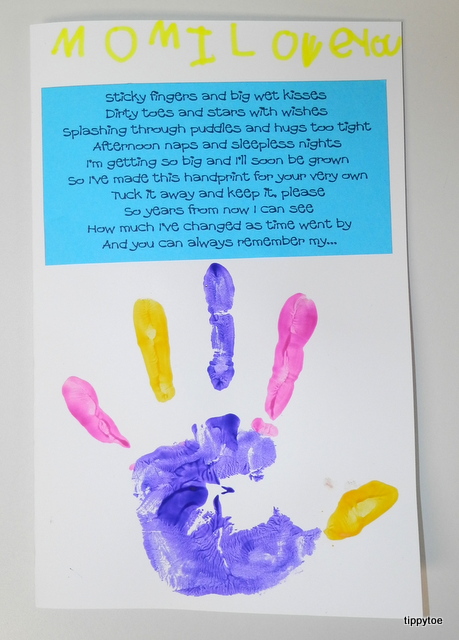 MOM I LOveYou
Sticky fingers and big wet kisses
Dirty toes and stars with wishes
Splashing through puddles and hugs too tight
Afternoon naps and sleepless nights
I'm getting so big and I'll soon be grown
So I've made this handprint for your very own
Tuck it away and keep it, please
So years from now I can see
How much I've changed as time went by
And you can always remember my...
tippytoe